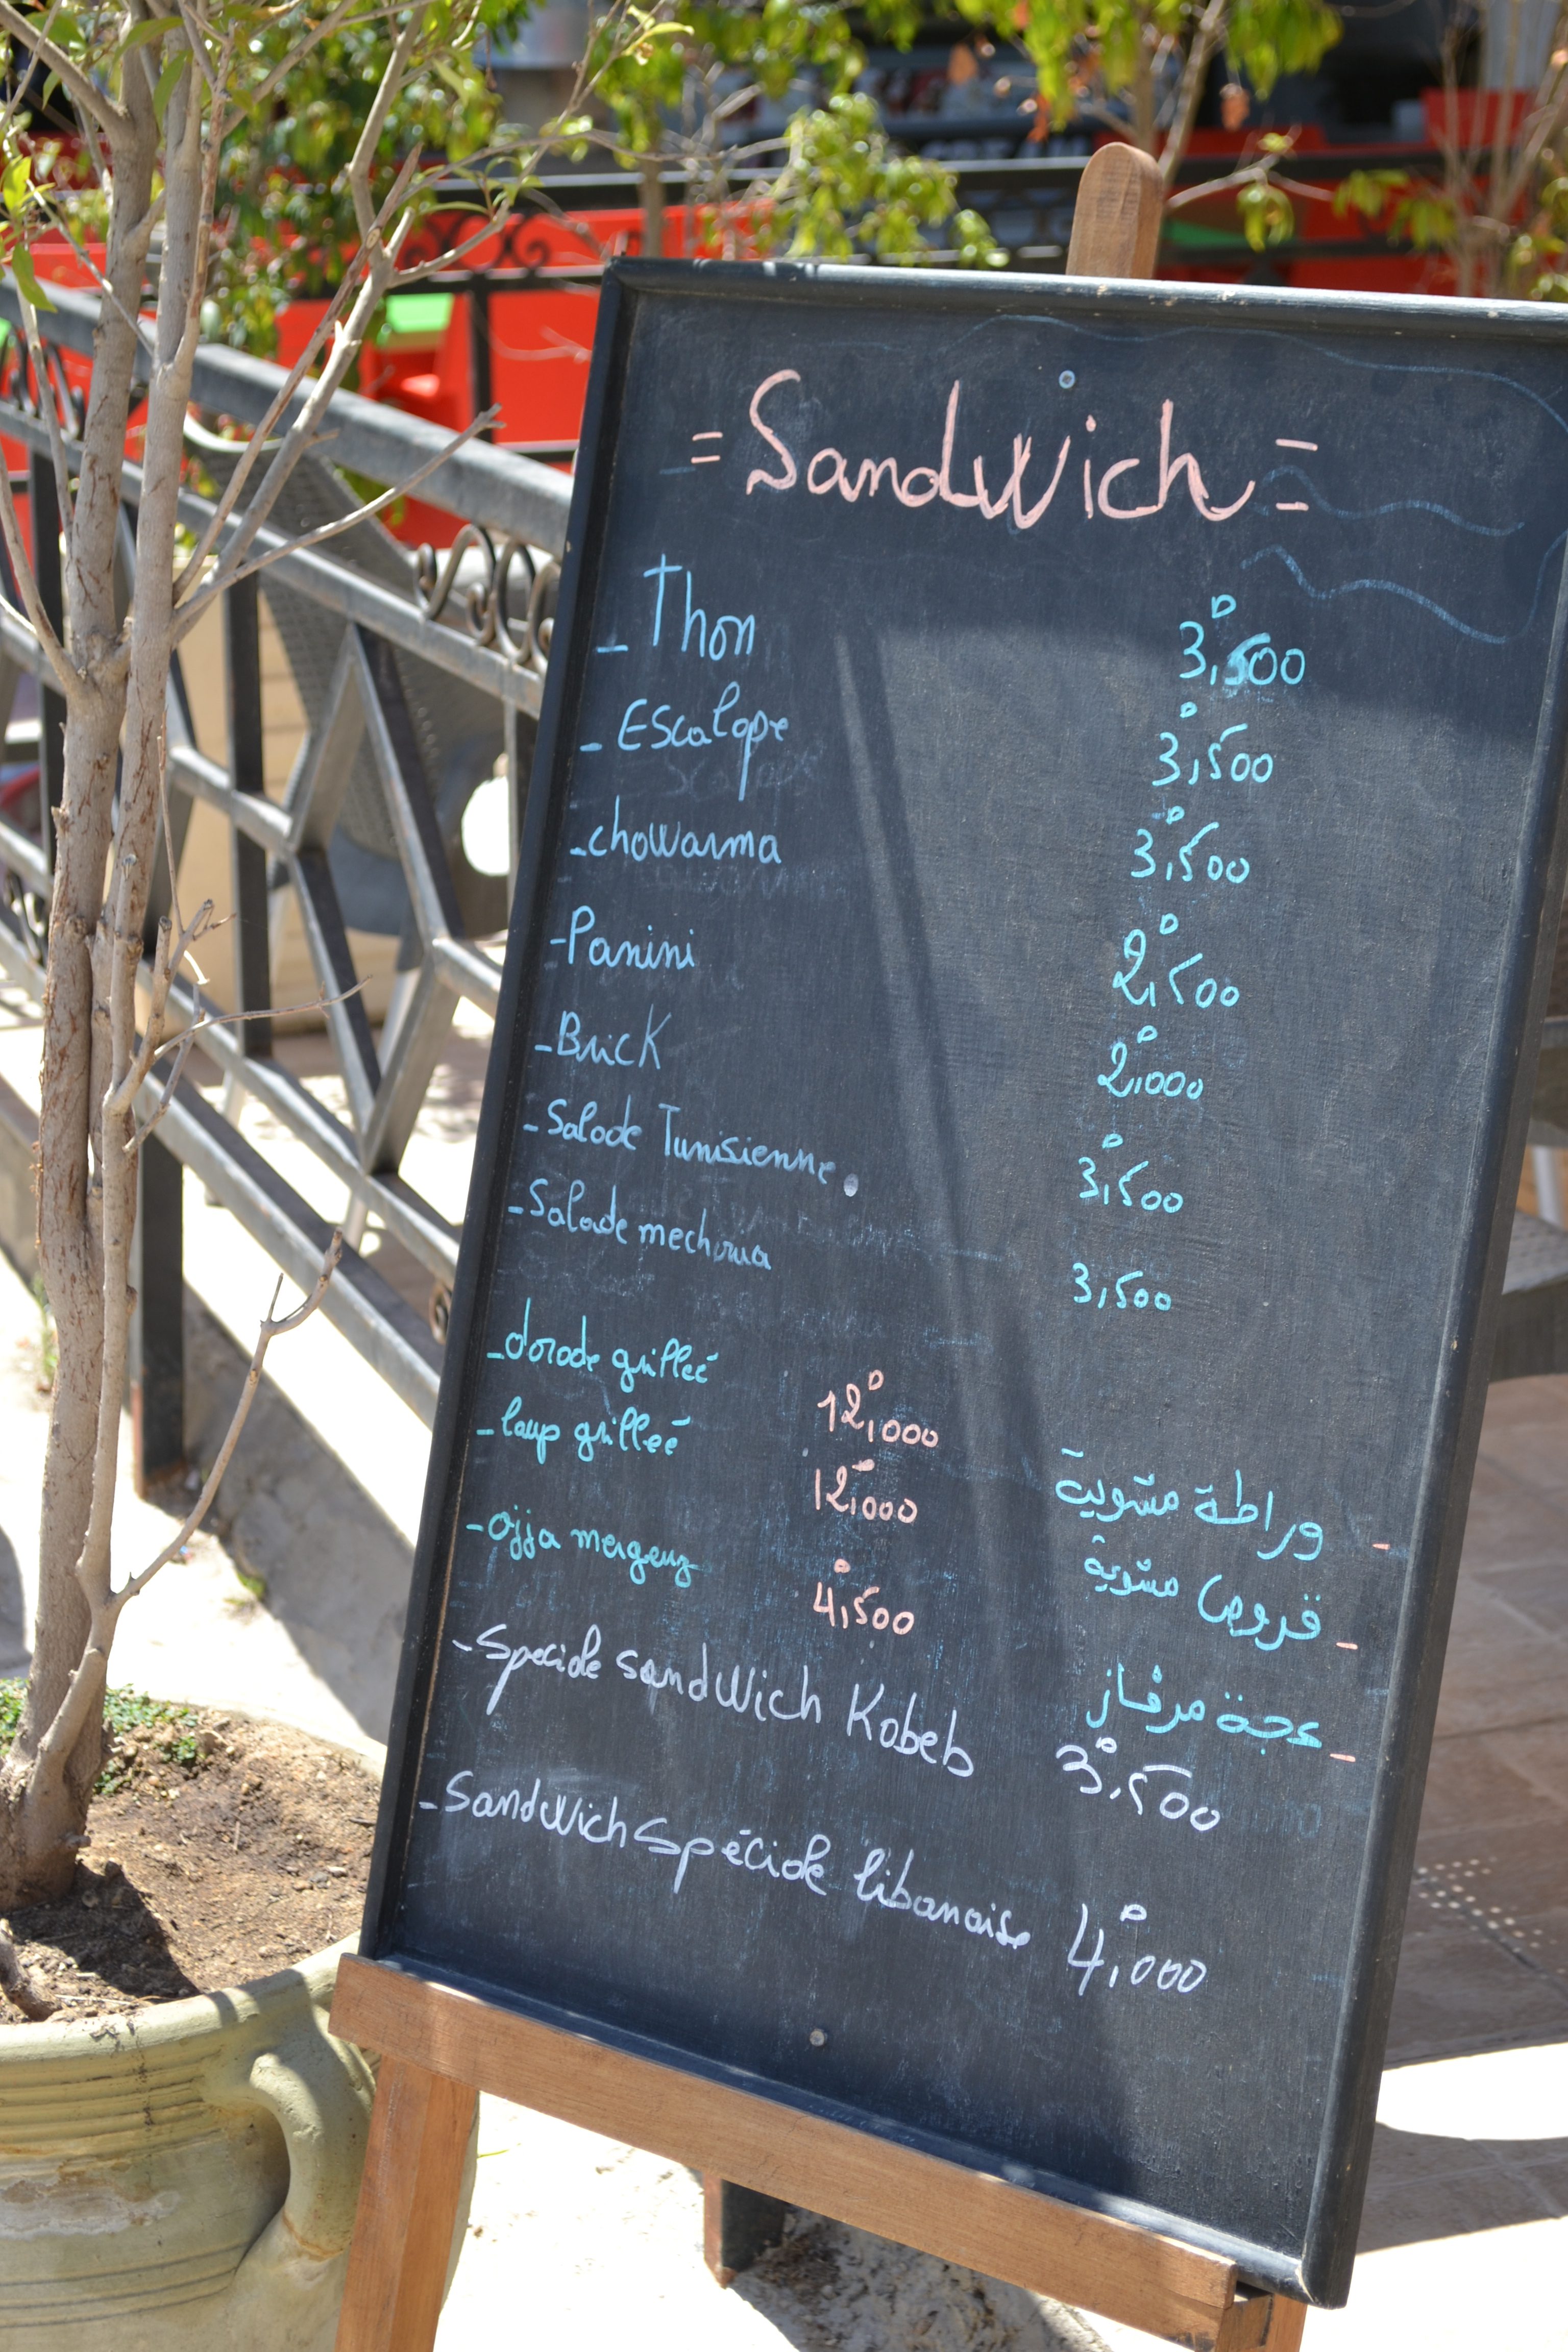 = Sandwich =
- Thon 3,500
- Escalope 3,500
- chowarma 3,500
- Panini 2,500
- Brick 2,000
- Salade Tunisienne. 3,500
- Salade mechouia 3,500
- dorade grilleé 12,000 وراطة مشوية -
- loup grilleé 12,000 قروص مشوية -
- ojja mergenz 4,500 عجة مرڤاز -
- Speciale sandwich Kebeb 3,500
- Sandwich spéciale libanaise 4,000